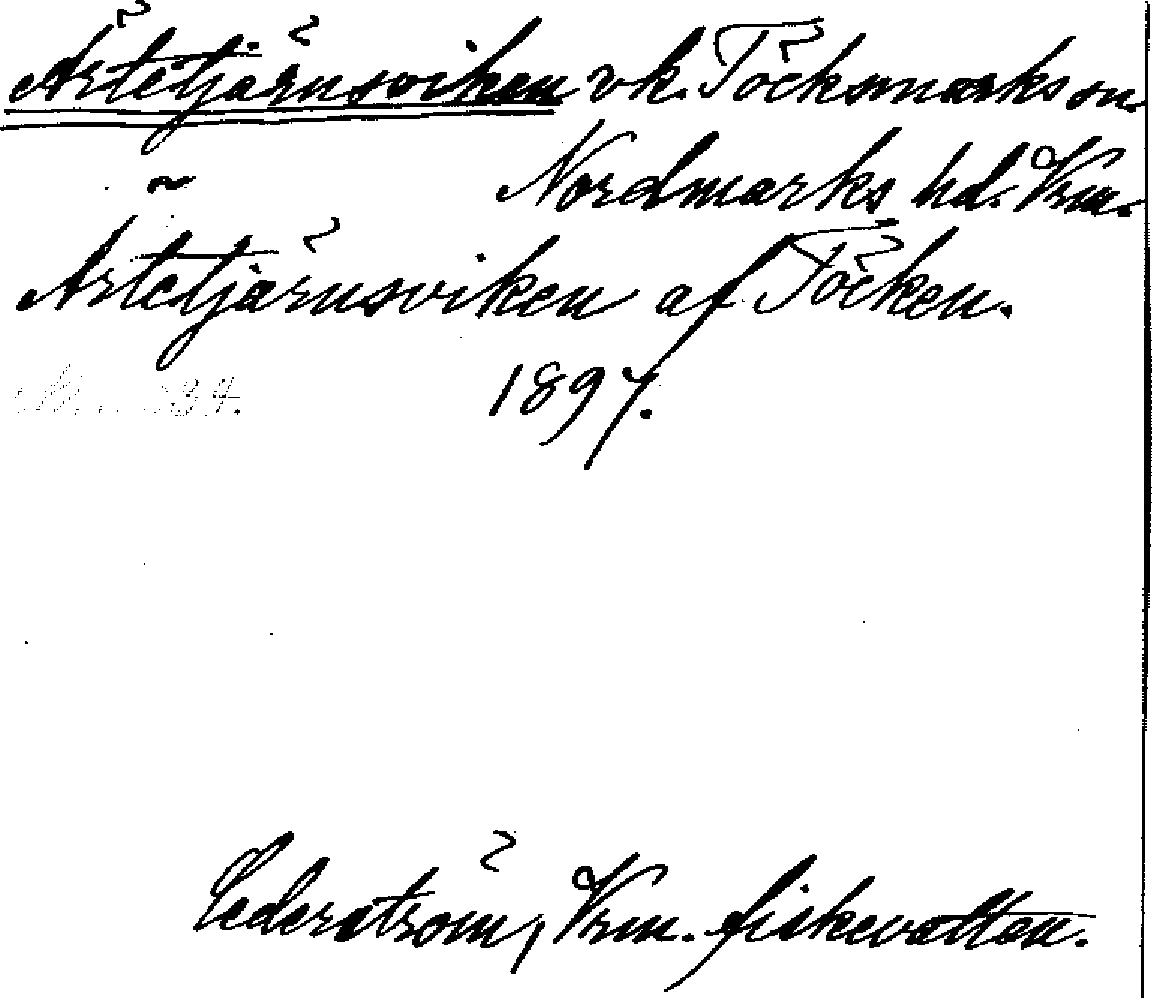 Ärtetjärnsviken vk. Töcksmarks sn.
Nordmarks hd. Vrm.
Artetjärnsviken af Töcken.
1897.
Cederström, Vrm. fiskevatten.